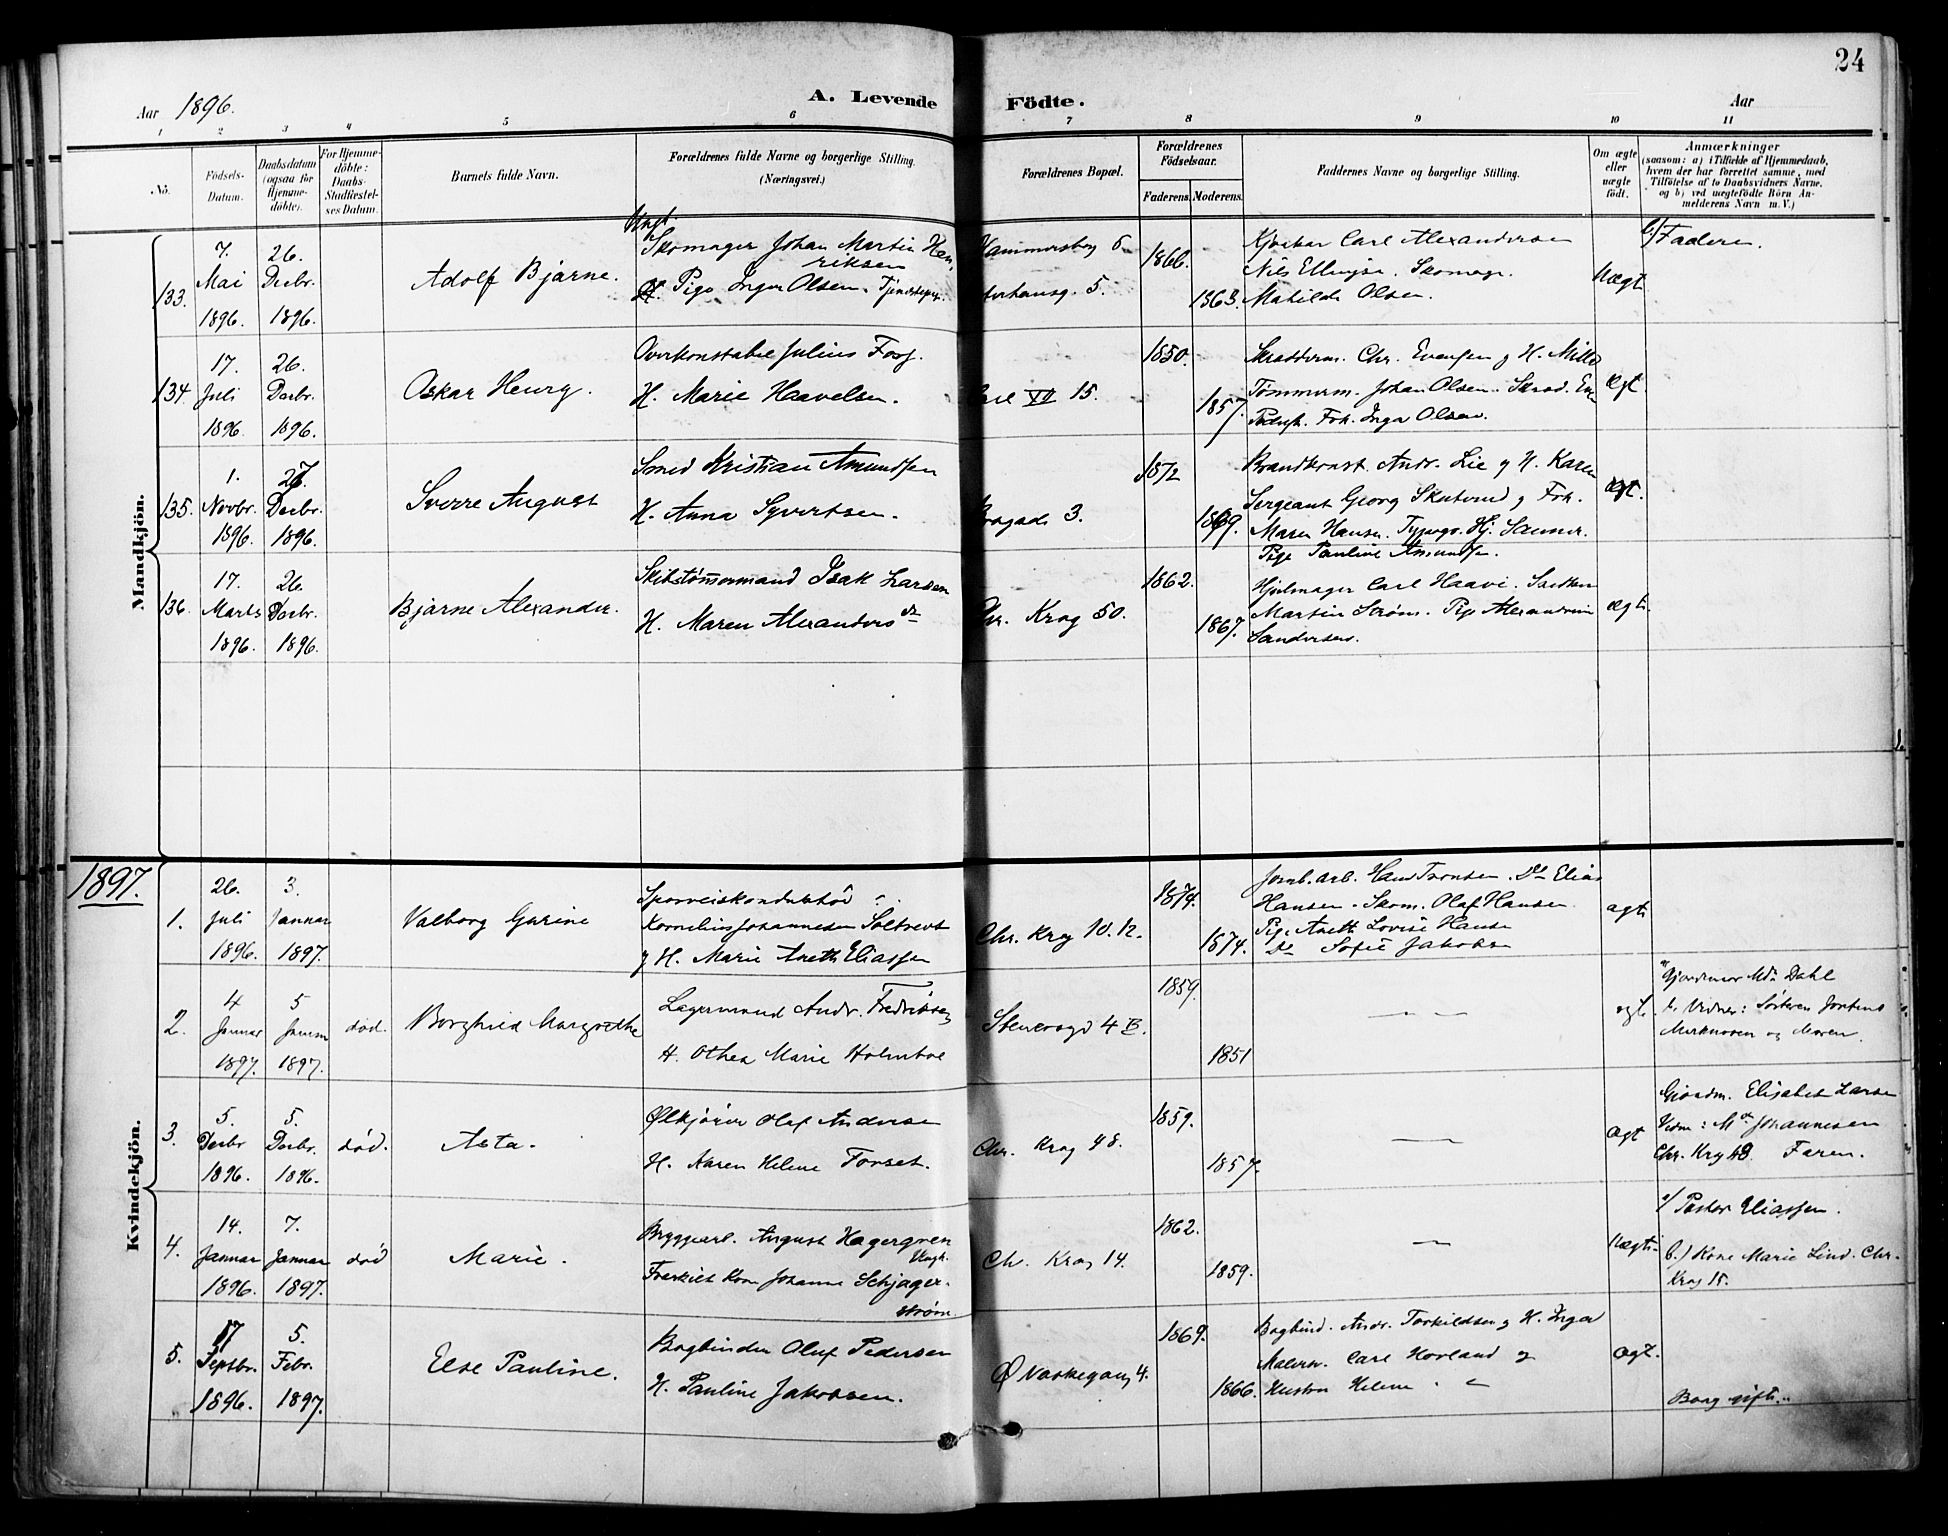 24
Aar 1896.
A. Levende Födte.
Aar
1 2 3 4 5 6 7 8 9 10 11
Nō.
Födsels-Datum.
Daabsdatum (ogsaa for Hjemme-döbte).
For Hjemme-döbte: Daabs-Stadfæstel-ses Datum.
Barnets fulde Navn.
Forældrenes fulde Navne og borgerlige Stilling. (Næringsvei.)
Forældrenes Bopæl.
Forældrenes Födselsaar.
Faderens. Moderens.
Faddernes Navne og borgerlige Stilling.
Om ægte eller uægte födt.
Anmærkninger
(saasom: a) i Tilfælde af Hjemmedaab,
hvem der har forrettet samme, med
Tilföielse af to Daabsvidners Navne,
og b) ved uægtefödte Börn An-
melderens Navn m. V.)
Mandkjön.
133.
7. Mai 1896.
26. Decbr. 1896.
Adolf Bjarne.
Ungk.
Skomager Johan Martin Hen-
riksen
Pige Inger Olsen, Tjenestepige.
Hammersborg 6
5.
1866.
1863.
Carl Alexandersen
Nils Ellingsen. Skomager.
Matilde Olsen.
Uægt
b/ Faderen.
134.
17. Juli 1896
26. Decbr. 1896.
Oskar Henry.
Overkonstabel Julius Fors.
H. Marie Haavelsen.
XII 15.
1850.
1857.
Skrædderm. Chr. Evensen og H. Milla
Tømmerm. Johan Olsen. Skræd.
Frk. Inga Olsen.
Ægt.
135.
1. Novbr. 1896.
27 Decbr. 1896.
Sverre August
Smed Kristian Amundsen
H. Anna Syvertsen.
3.
1872
1869.
Brandkonst. Andr. Lie og H. Karen
Sergeant Georg Skuterud og Frk.
Maren Hansen. Typogr. Hj. Sanner.
Pige Pauline Amundsen.
Ægt.
136.
17. Marts 1896.
26. Decbr. 1896.
Bjarne Alexander.
Skibstømmermand Isak Larsen
H. Maren Alexandersdr
Chr. Krog 50.
1862.
1867.
Hjulmager Carl Haavi.
Martin Strøm. Pige Alexandrine
Sandersen.
ægt.
1897.
Kvindekjön.
1.
26. Juli 1896.
3. Januar 1897.
Valborg Gurine
Sporveiskonduktør
Kornelius Johannesen Soltvedt
og H. Marie Aneth Eliassen
Chr. Krog 10.12.
1874.
1874.
Jernb. arb. Hans Tronsen. Do Elias
Hansen. Skom. Olaf Hansen.
Pige Aneth Lovise Hansen
Do Sofie Jakobsen
ægt
2.
4 Januar 1897.
5 1897.
død.
Borghild Margrethe
Lagermand Andr. Fredriksen
H. Othea Marie Holmboe
Stenersgd 4 B.
1859.
1851
— " —
ægt.
a/ Gjordemor Md. Dahl
Vidner:
og Moren.
3.
5. Decbr 1896.
5. Decbr. 1896.
død.
Asta.
Ølkjører Olaf Andersen
H. Karen Helene Forset.
Chr. Krog 48.
1859.
1857.
—"—
Ægt
Gjordm. Elisabet Larsen
Vidn: Md Johannesen
Chr. Krog 48. Faren.
4.
14. Januar 1896.
7. Januar 1897.
død
Marie.
Bryggearb. August Hagergren
Ungk.
Fraskilt Kone Johanne Schjager-
strøm.
Ch. Krog 14.
1862.
1859.
—"—
Uægte
a/ Pastor Eliassen.
b./ Kone Marie Lind. Chr.
Krog 15.
5.
17 Septbr. 1896.
5. Febr. 1897.
Else Pauline.
Bogbinder Oluf Pedersen
H. Pauline Jakobsen.
Ø Vaskegang 4.
1869.
1866.
Bogbind. Andr. Torkildsen og H. Inga
Malersv. Carl Hovland og
Hustru Helene "
Ægt.
Borg. gifte.